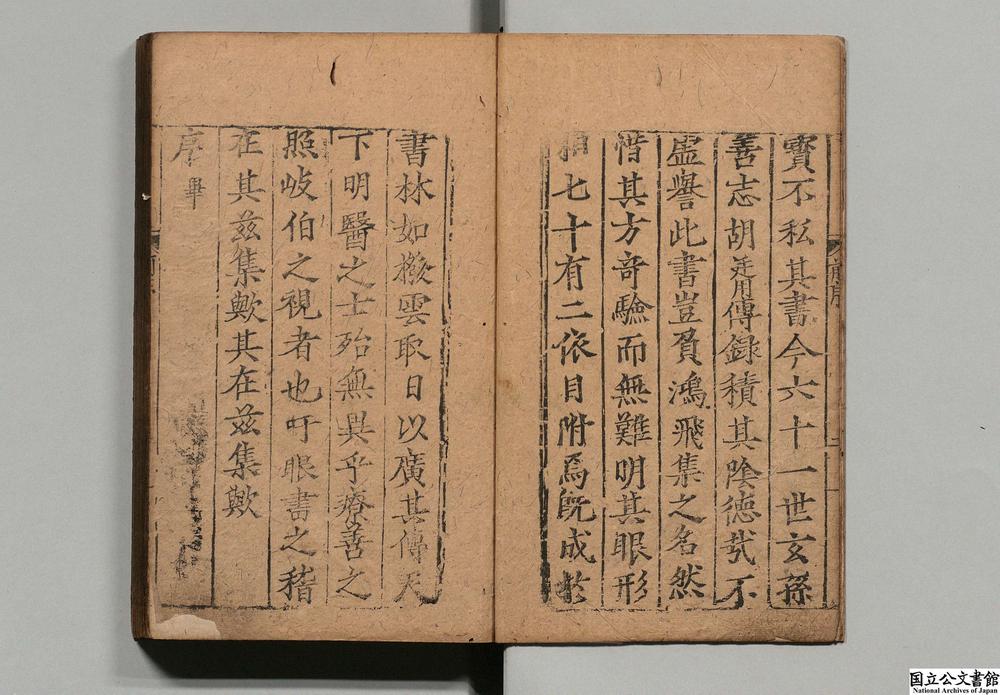 寳不私其書今六十一世玄孫
善志胡廷用傳録積其陰德㢤不
虛譽此書豈負鴻飛集之名然
惜其方竒驗而無難明其眼形
七十有二依目附焉既成於
書林如撥雲取日以廣其傳天
下明醫之士殆無異乎療善之
照岐伯之視者也吁眼書之稽
在其兹集歟其在兹集歟
序畢
前序
国立公文書館
National Archives of Japan